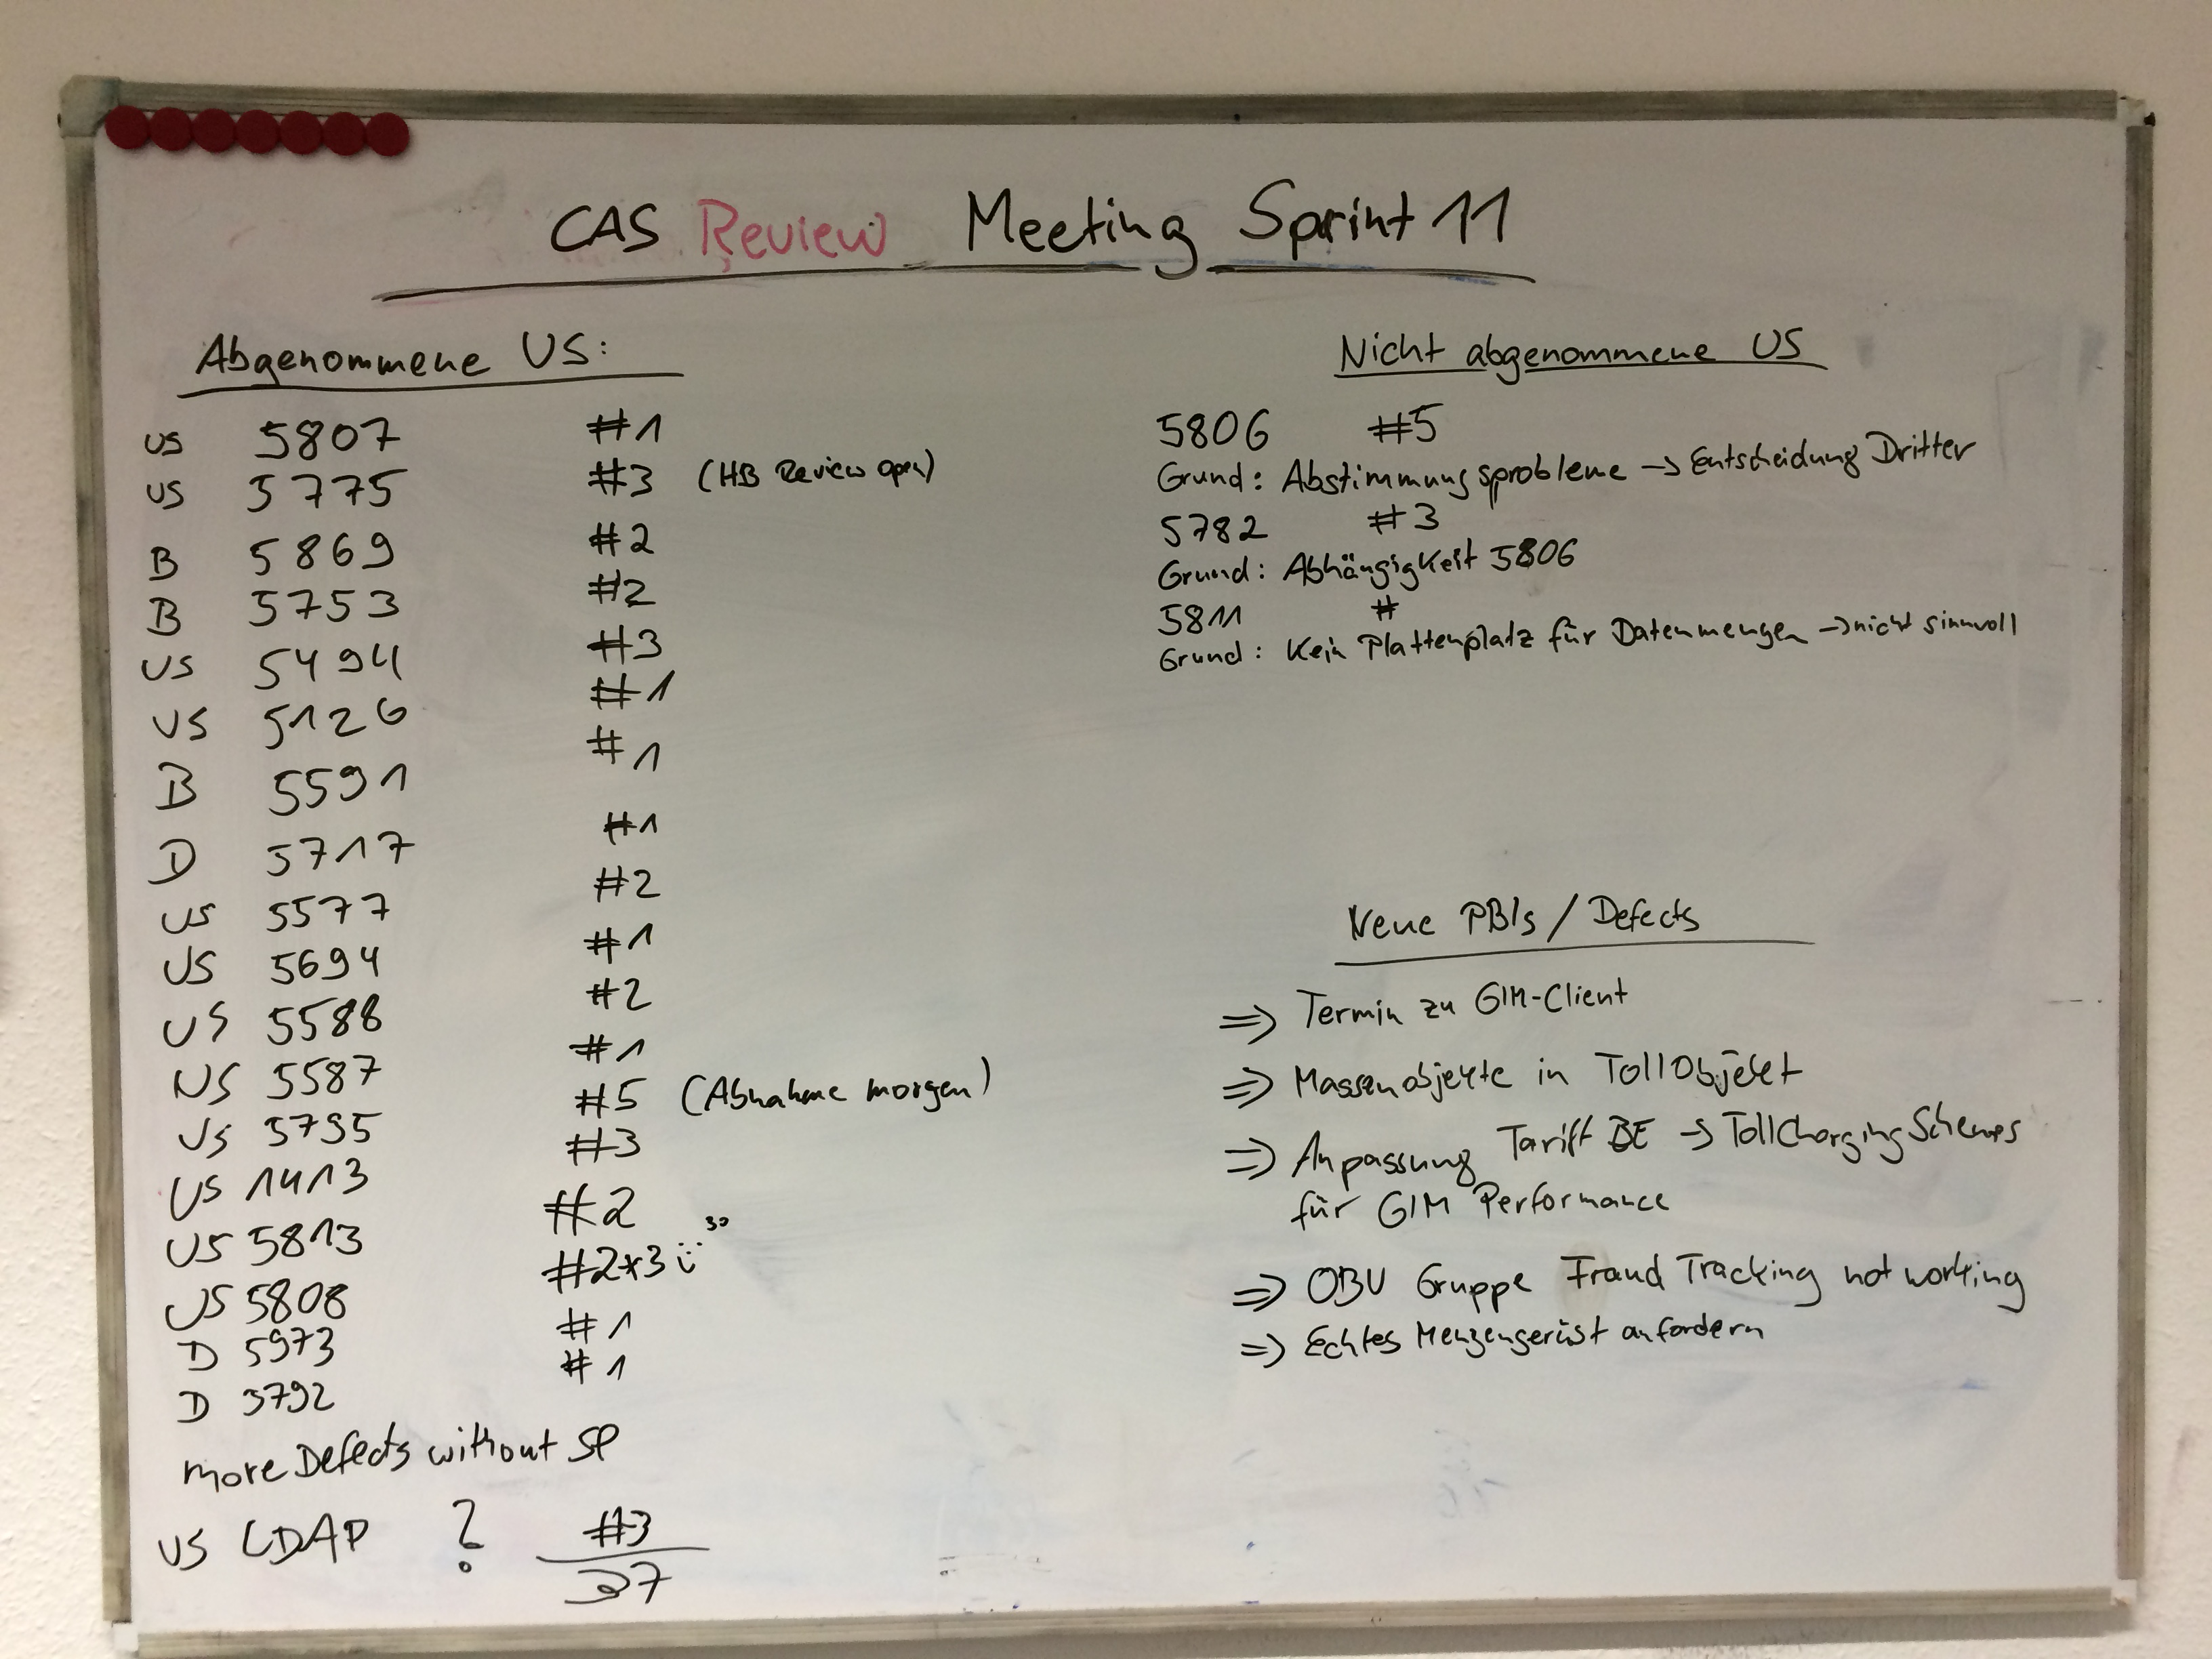 CAS Review Meeting Sprint 11
Abgenommene US:
US 5807 #1
US 5775 #3 (HB Review open)
B 5869 #2
B 5753 #2
US 5494 #3
US 5126 #1
B 5591 #1
D 5717 #1
US 5577 #2
US 5694 #1
US 5588 #2
NS 5587 #1
US 5795 #5 (Abnahme morgen)
US 1413 #3
US 5813 #2
US 5808 #2*3
D 5973 #1
D 5792 #1
more Defects without SP
US LDAP ? #3
37
Nicht abgenommene US
5806 #5
Grund: Abstimmungsprobleme → Entscheidung Dritter
5782 #3
Grund: Abhängigkeit 5806
5811 #
Grund: Kein Plattenplatz für Datenmengen → nicht sinnvoll
Neue PBIs / Defects
⇒ Termin zu GIM-Client
⇒ Massenobjekte in TollObjekt
⇒ Anpassung Tariff BE → TollChargingSchemes
für GIM Performance
⇒ OBU Gruppe Fraud Tracking not working
⇒ Echtes Mengengerüst anfordern